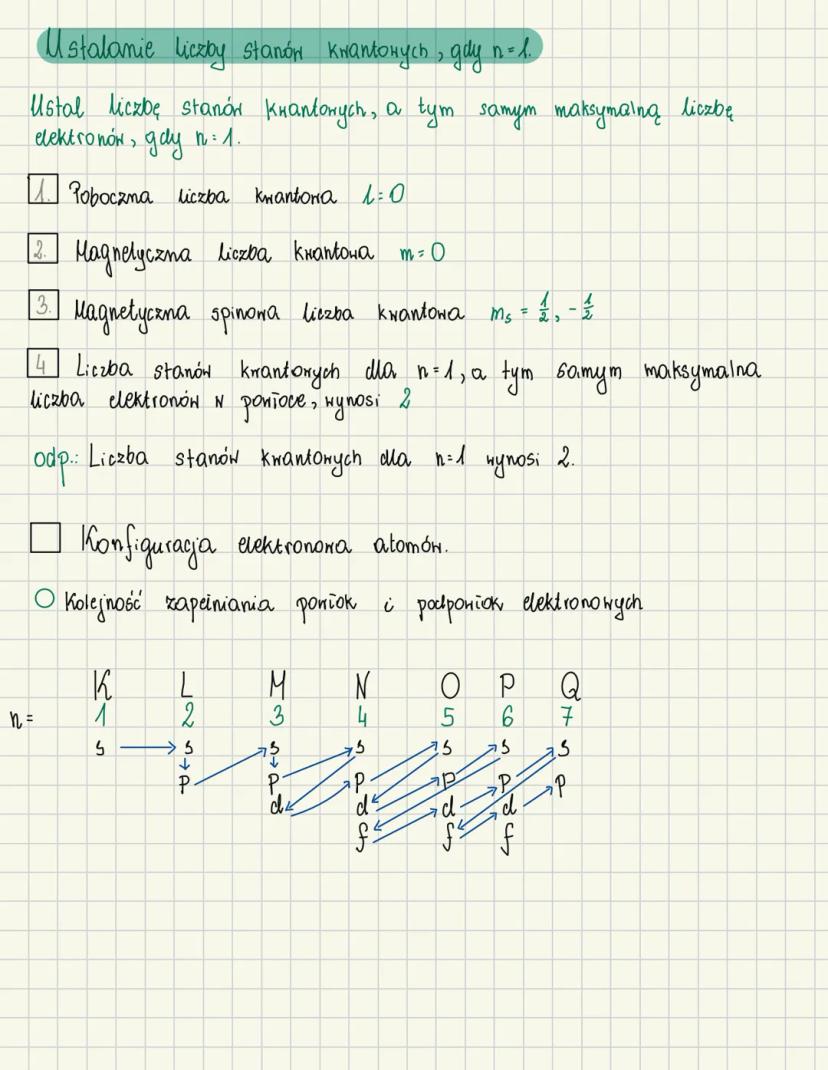 Ustalanie liczby stanów kwantowych, gdy n=1.
Ustal liczbę stanów kwantowych, a tym samym maksymalną liczbę
elektronów, gdy n=1.
1. Poboczna liczba kwantowa l=0
2. Magnetyczna liczba kwantowa m=0
3. Magnetyczna spinowa liczba kwantowa ms = 1/2, -1/2
4 Liczba stanów kwantowych dla n=1, a tym samym maksymalna
liczba elektronów w powłoce, wynosi 2
odp.: Liczba stanów kwantowych dla n=1 wynosi 2.
Konfiguracja elektronowa atomów.
Kolejność zapełniania powłok i podpowłok elektronowych
K L M N O P Q
n= 1 2 3 4 5 6 7
s s s s s s s
p p p p p p
d d d d
f f f